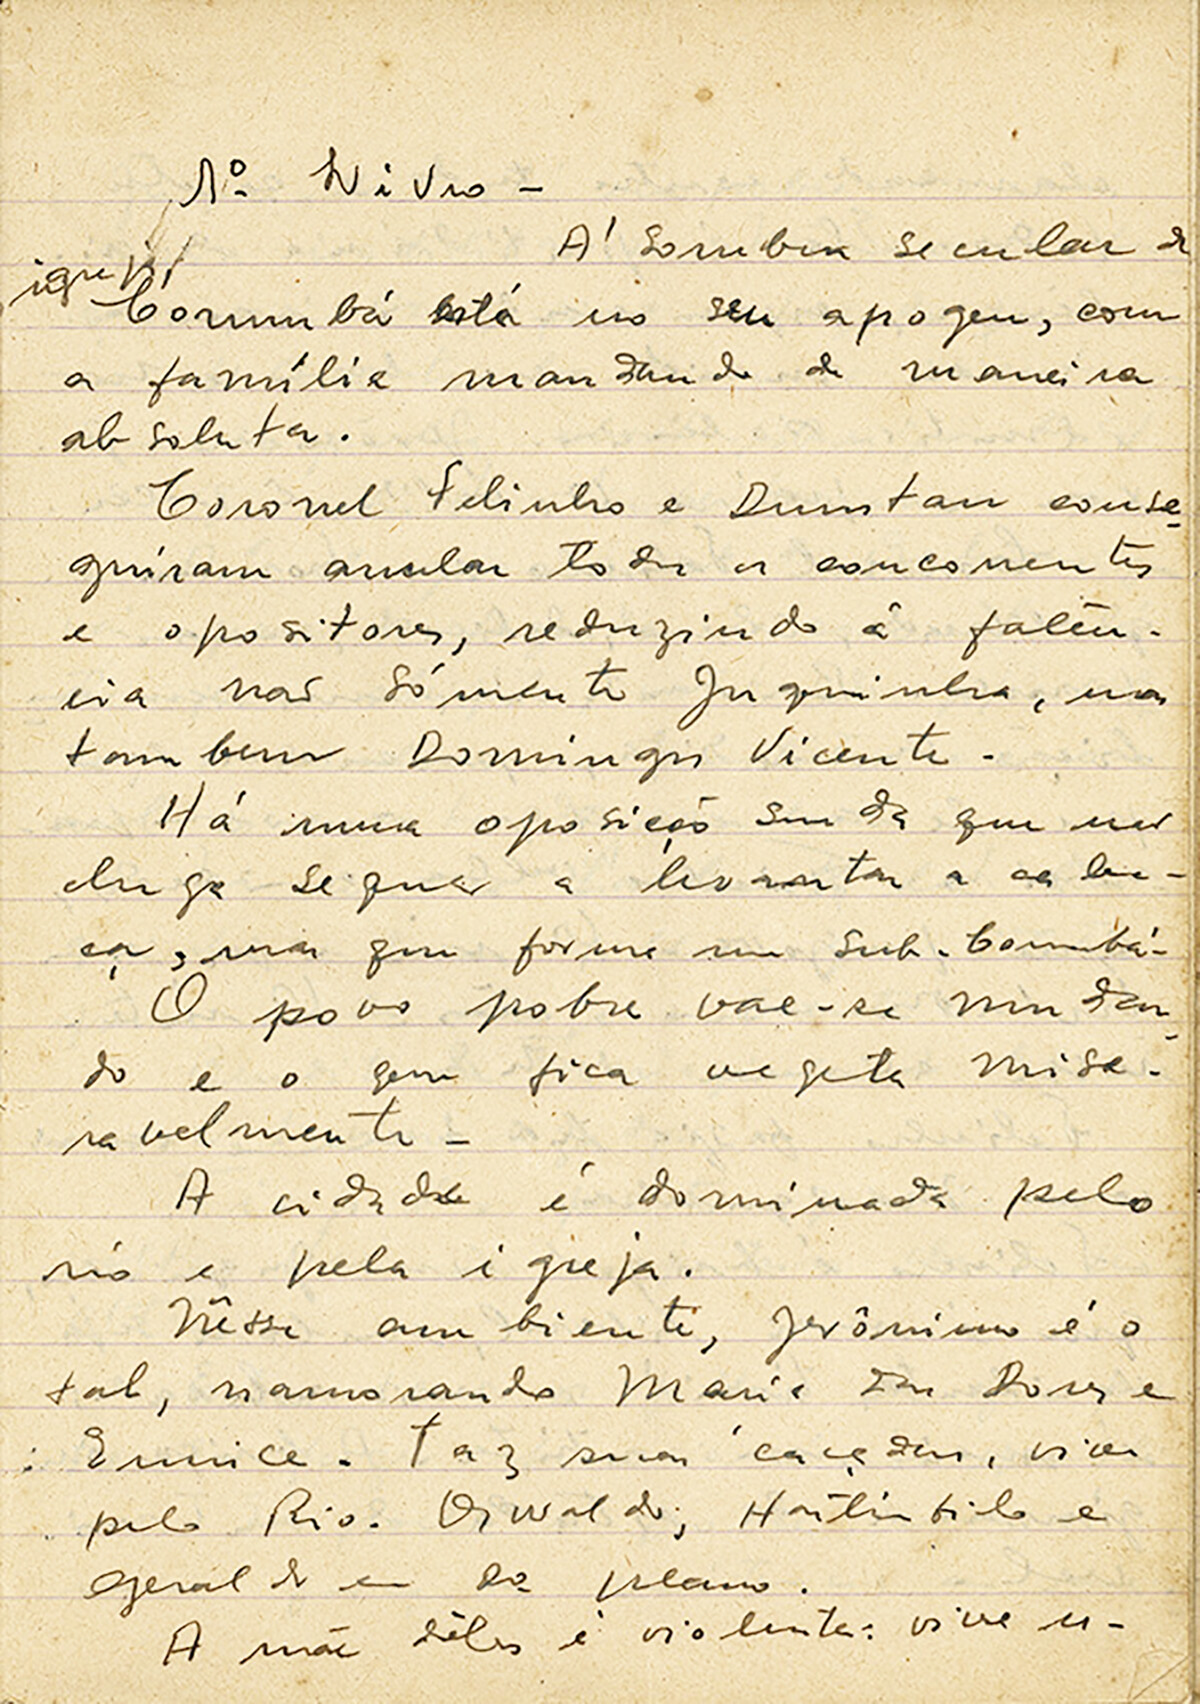 1º Livro -
A' sombra secular da
igreja
Corumbá está no seu apogeu, com
a família mandando de maneira
absoluta.
Coronel Felinho e Dunstan conse
guiram anular todos os concorrentes
e opositores, reduzindo á falên-
cia não sómente Juquinha, mas
tambem Domingos Vicente.
Há uma oposição surda que não
chega sequer a levantar a cabe-
ça, mas que forma um sub-Corumbá-
O povo pobre vae-se mudan
do e o que fica vegeta mise-
ravelmente -
A cidade é dominada pelo
rio e pela igreja.
Nêsse ambiente, Jerônimo é o
tal, namorando Maria das Dores e
Eunice. Faz suas caçadas, vive
pelo Rio. Oswaldo,
Geraldo
A mãe dêles é violenta: vive u-